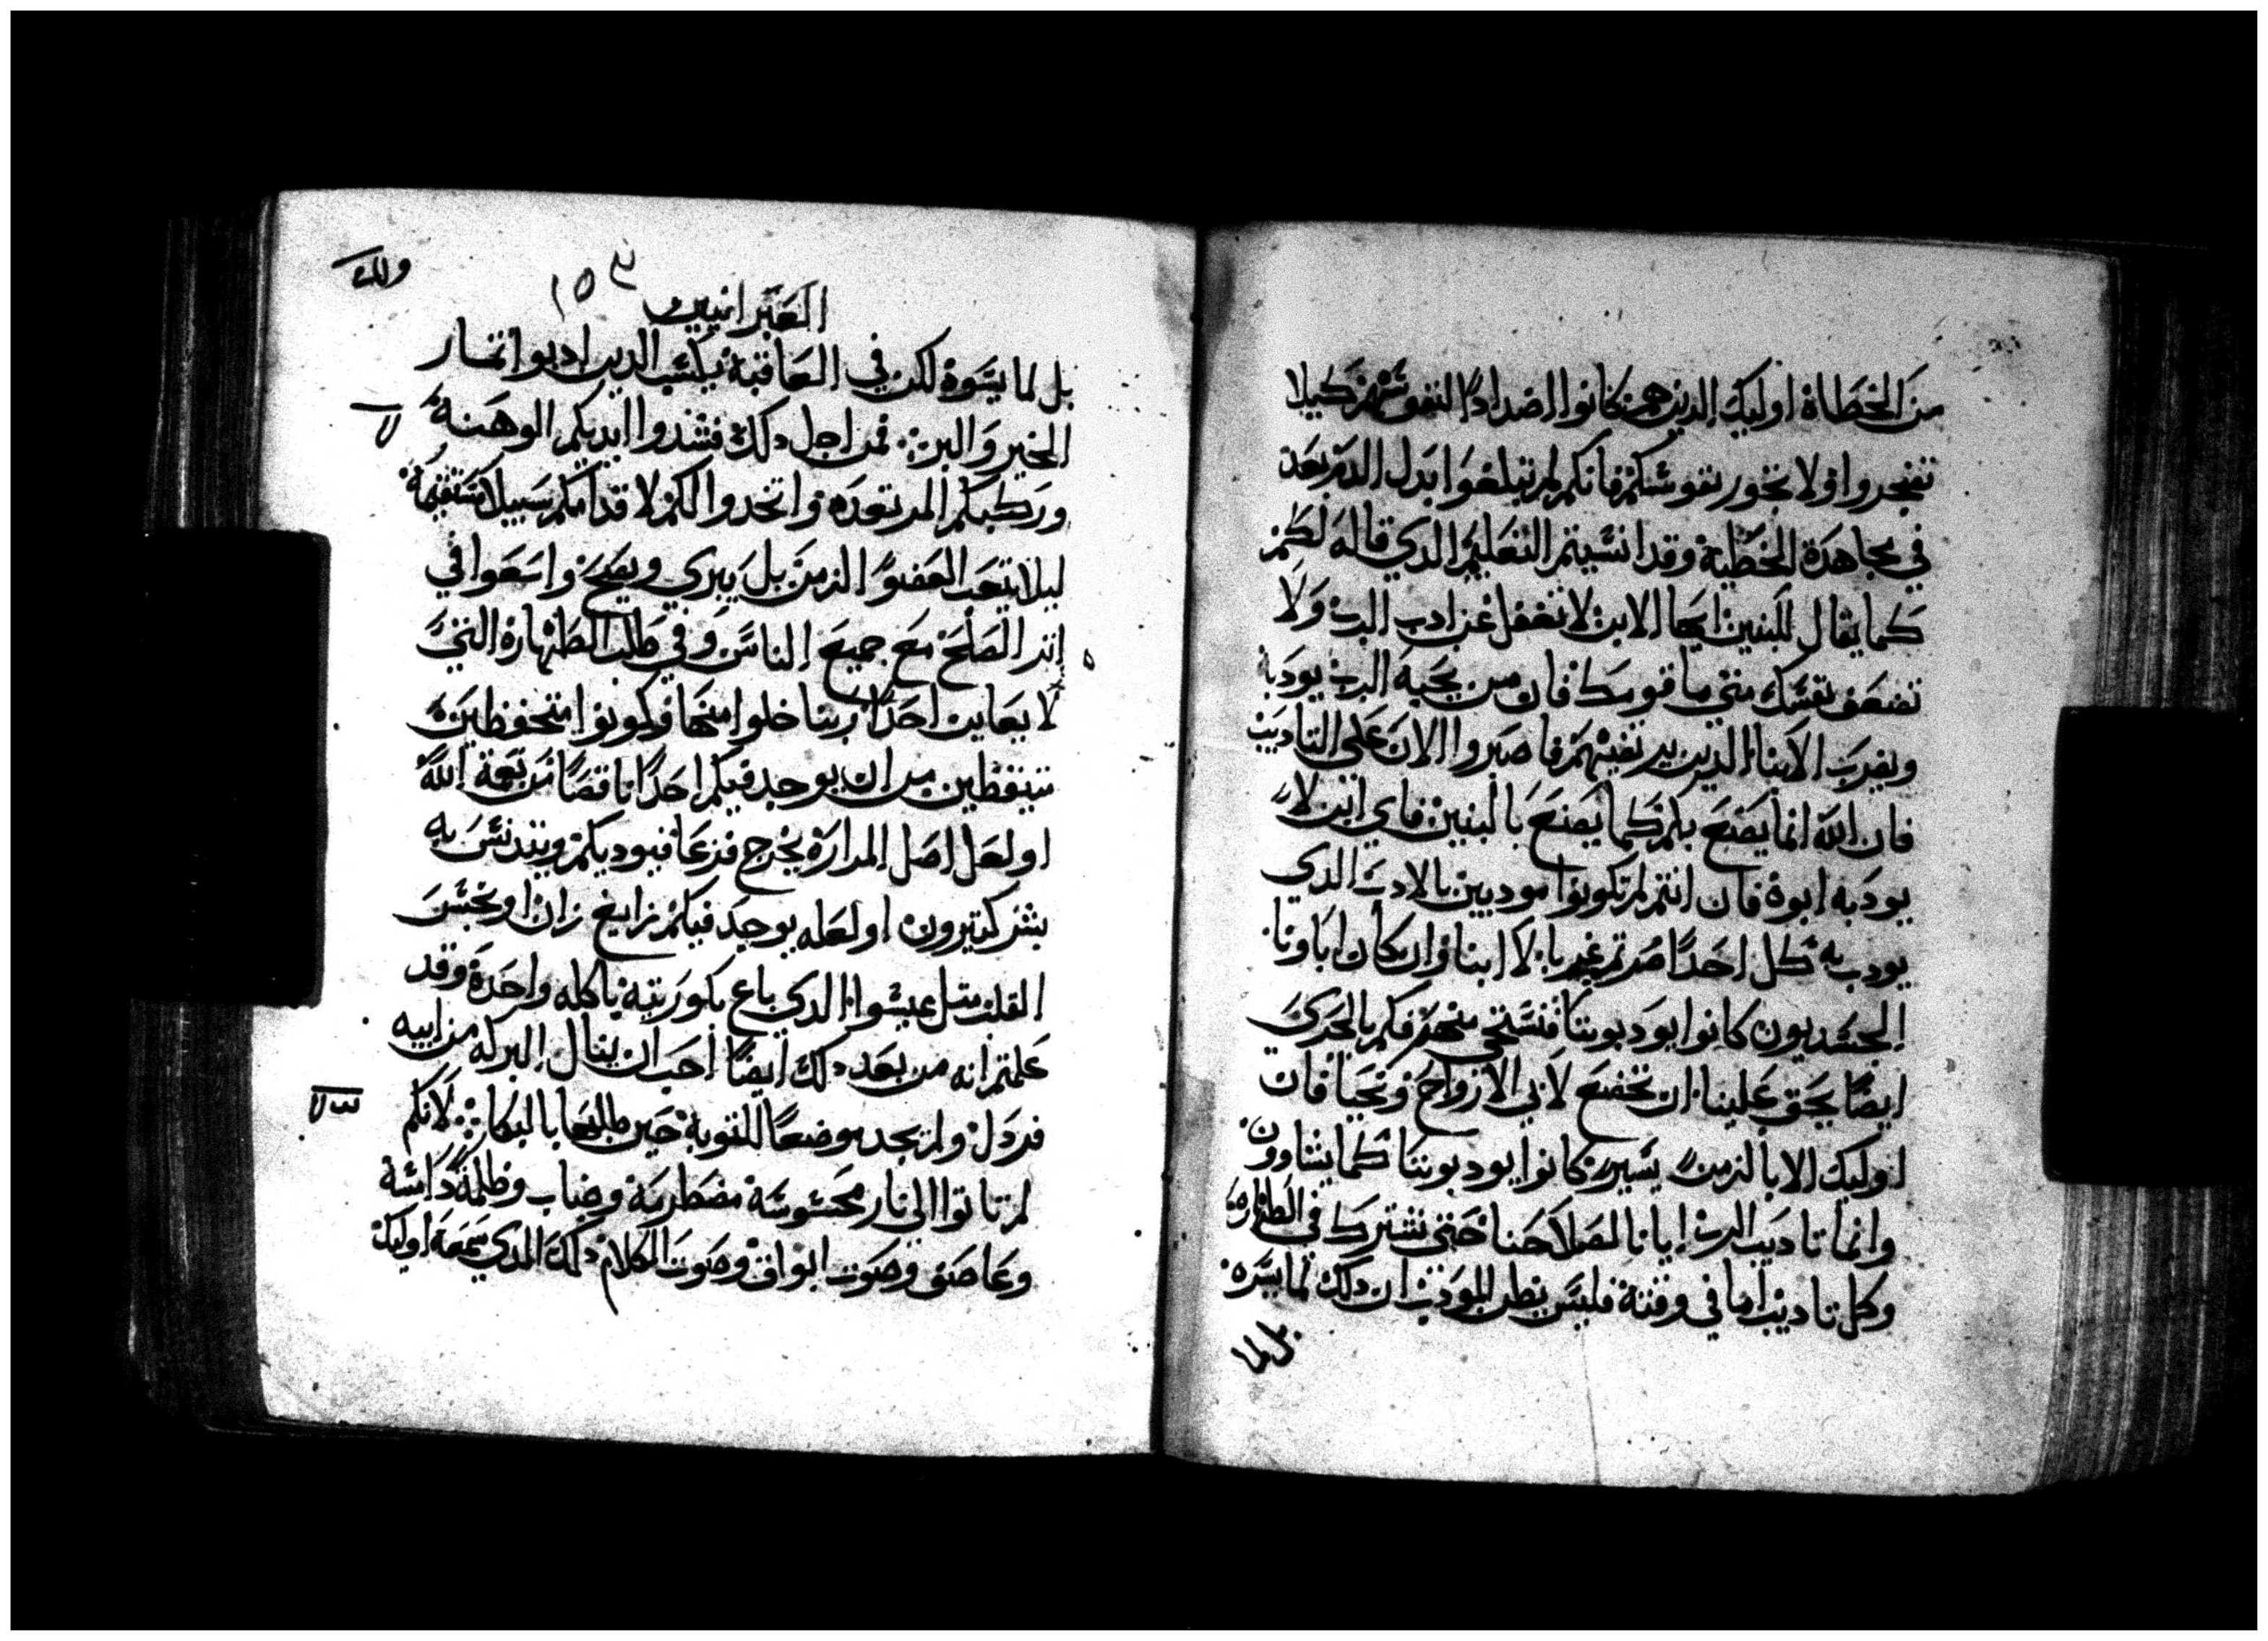 من الخطاة اوليك الدين هم كانوا اضدادًا لنفوسهم كيلا
تضجروا ولا تخور نفوسكم فانكم لم تبلغوا بدل الدم بعد
في مجاهدة الخطية وقد انسيتم التعليم الدي قاله لكم
كما يقال للبنين ايها الابن لا تغفل عن ادب الرب ولا
تضعف نفسك متي ما قومك فان من يحبه الرب يودبه
ويضرب الابنا الدين يرتضيهم فاصبروا الان علي التاديب
فان الله انما يصنع بكم كما يصنع بالبنين فاي ابن لا
يودبه ابوه فان انتم لم تكونوا مودبين بالادب الدي
يودب به كل احدًا صرتم غربا لا ابنا وان كان اباونا
الجسديون كانوا يودبوننا فنستحي منهم فكم بالحري
ايضًا يحق علينا ان نخضع لابي الارواح ونحيا فان
اوليك الابا لزمن يسير كانوا يودبوننا كما يشاوون
وانما تاديب الرب ايانا لصلاحنا حتي نشترك في الطهارة
وكل تاديب اما في وقته فليس يظن المودب ان دلك لما يسره
العبرانيين
١٥٣
بل لما يسوه لكن في العاقبة يكسب الدين ادبوا اثمار
الخير والبر فمن اجل دلك فشدوا ايديكم الوهنة
وركبكم المرتعده واتخدوا لكم لاقدامكم سبيلا مستقيمة
ليلا يتعب العضو الزمن بل يبري ويصح واسعوا في
اثر الصلح مع جميع الناس وفي طلب الطهارة التي
لا يعاين احدًا ربنا خلوا منها وكونوا متحفظين
متيقظين من ان يوجد فيكم احدًا ناقصًا من نعمة الله
او لعل اصل المرارة يخرج فرعًا فيوديكم ويتدنس به
بشر كتيرون او لعله يوجد فيكم زايغ زان او نجس
القلب متل عيسوا الدي باع بكوريته باكله واحدة وقد
علمتم انه من بعد دلك ايضًا احب ان ينال البركه من ابيه
فردل ولم يجد موضعًا للتوبة حين طلبها بالبكا لانكم
لم تاتوا الي نار محسوسة مضطرمة وضباب وظلمة دامسة
وعاصف وصوت ابواق وصوت الكلام دلك الدي سمعه اوليك